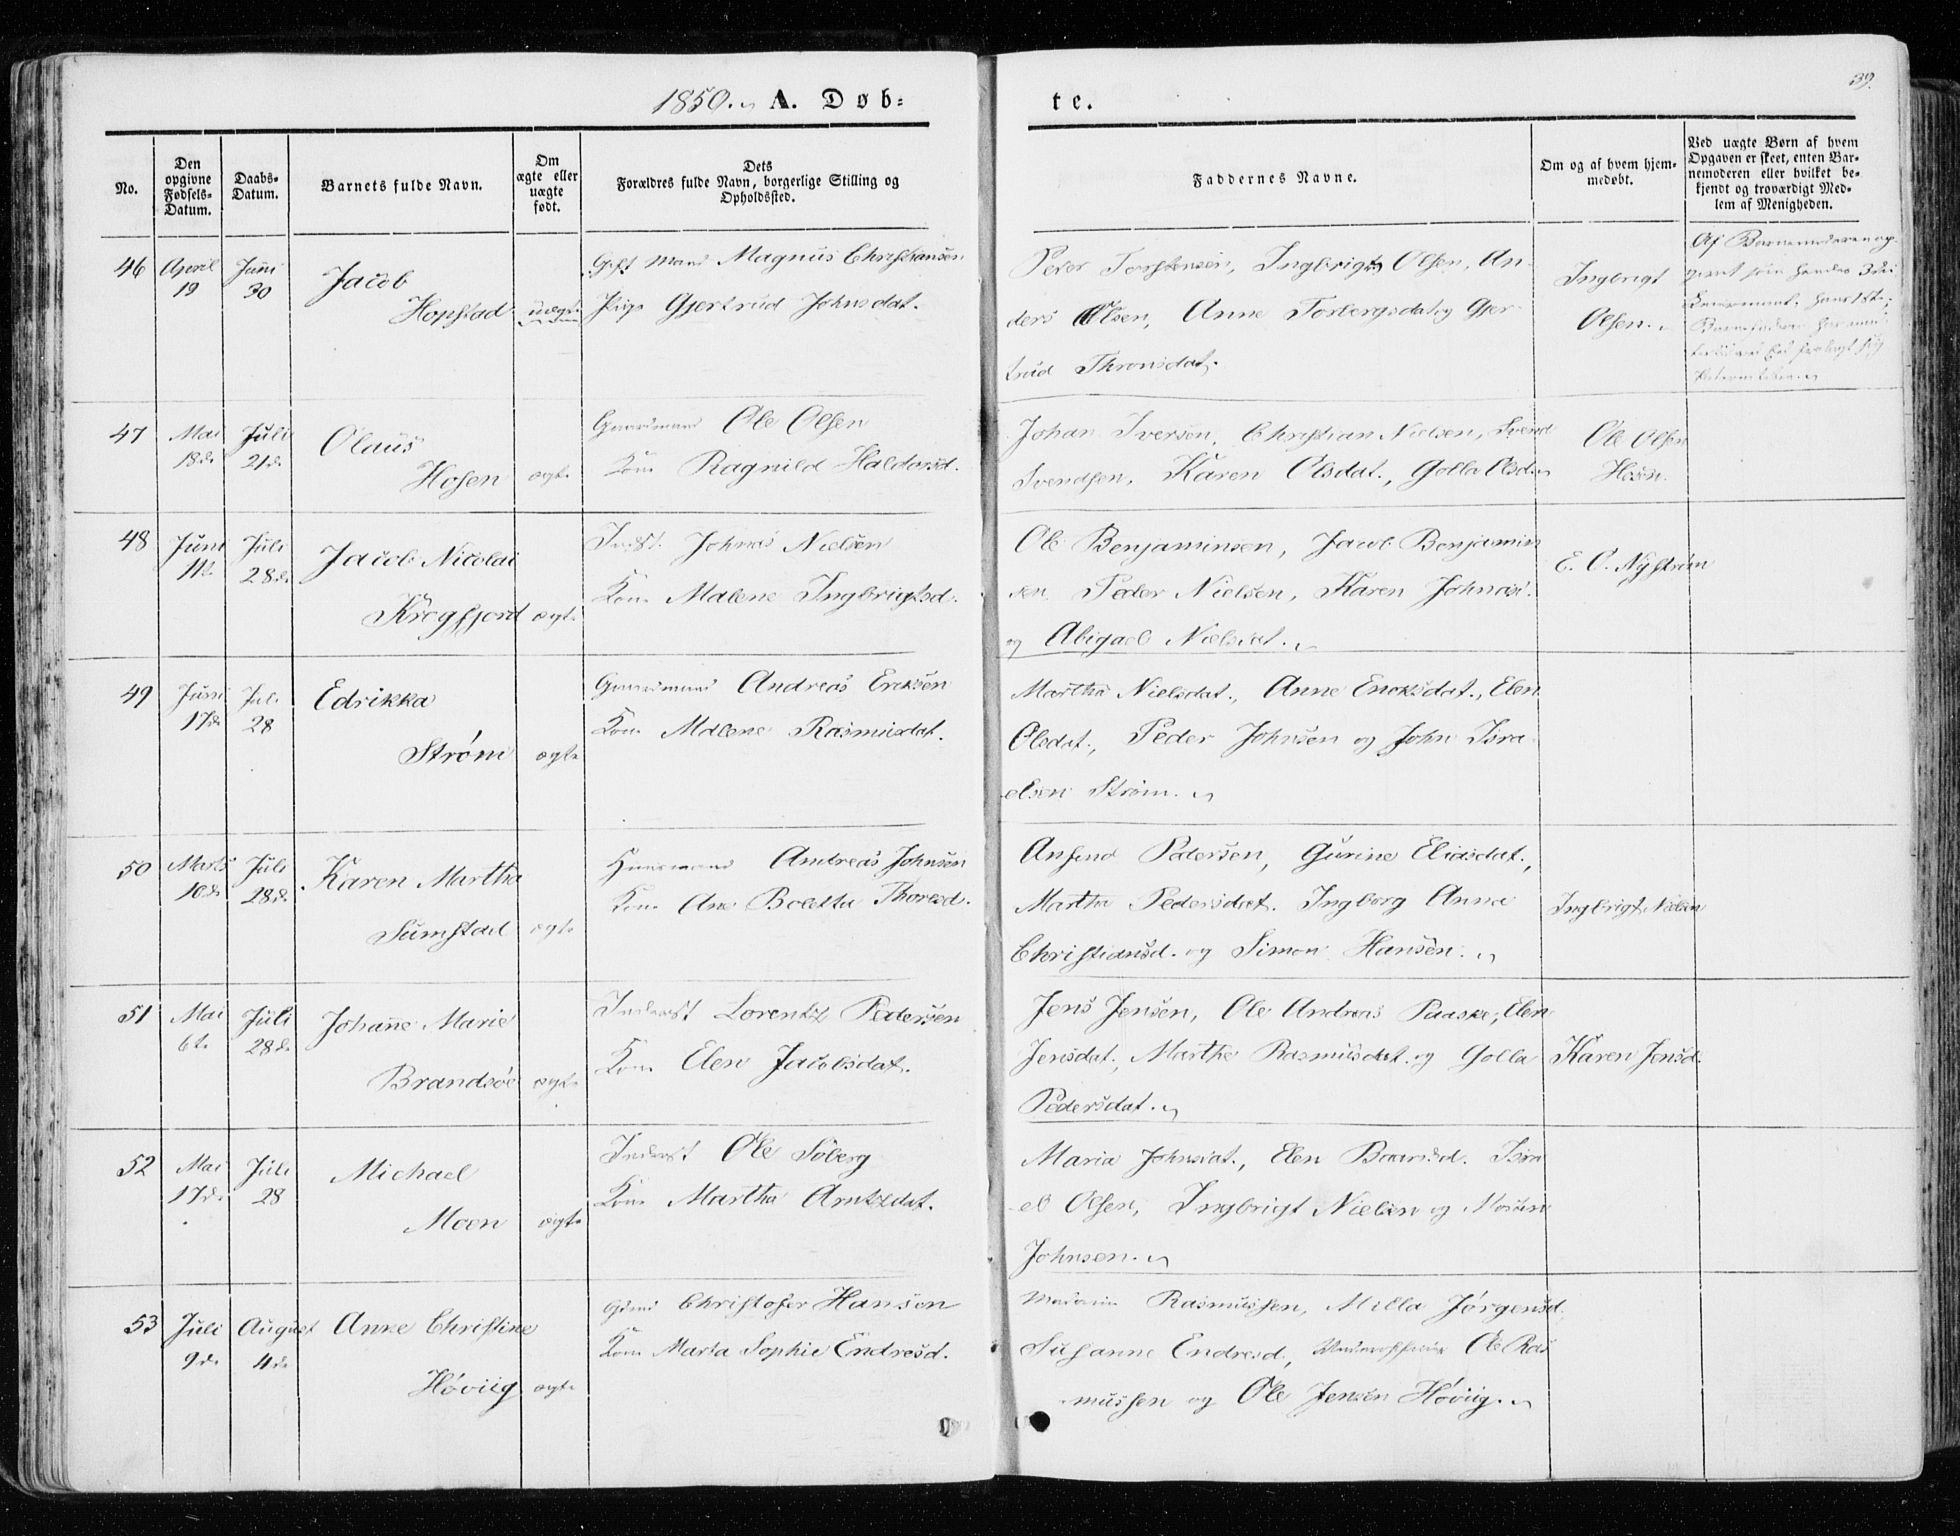 1850. A. Døb=
te.
39.
No.
Den opgivne Fødsels=Datum.
Daabs=Datum.
Barnets fulde Navn.
Om ægte eller uægte født.
Dets
Forældres fulde Navn, borgerlige Stilling og
Opholdssted.
Faddernes Navne.
Om og af hvem hjem=
medøbt.
Ved uægte Børn af hvem
Opgaven er skeet, enten Bar=
nemoderen eller hvilket be=
kjendt og troværdigt Med=
lem af Menigheden.
46 April 19 Juni 30 Jacob
Hopstad uægte
Gift Mand Magnus Christiansen
Pige Gjertrud Johnsdat.
Peder Torstensen, Ingbrigt Olsen, An-
ders Olsen, Anne Torbergsdat og Gjer-
trud Thronsdat.
Ingbrigt
Olsen.
Af Barnemoderen op-
47 Mai 18de Juli 21de Olaus
Hosen ægte
Gaardmand Ole Olsen
Kone Ragnild Haldorsd.
Johan Iversen, Christian Nielsen, Svend
Svendsen, Karen Olsdat., Golla Olsd.
Ole Olsen
Hosen.
48 Juni 11te Juli 28de Jacob Nicolai
Krogfjord ægte
Inderst Johnas Nielsen
Kone Malene Ingbrigtsd.
Ole Benjaminsen, Jacob Benjamin
sen, Peder Nielsen, Karen Johnasd.
og Abigael Nielsdat.
E. O. Nystrøm
49 Juni 17de Juli 28 Edrikka
Strøm ægte
Gaardmand Andreas Ericksen
Kone Malene Rasmusdat.
Martha Nielsdat., Anne Ericksdat., Elen
Olsdat., Peder Johnsen og John Isra-
elsen Strøm.
50 Marts 10de Juli 28de Karen Martha
Sumstad ægte
Huusmand Andreas Johnsen
Kone Ane Boletta Thoresd.
Ansend Pedersen, Gurine Eliasdat.,
Martha Pedersdat. Ingborg Anna
Christiansd. og Simon Hansen.
Ingbrigt Nielsen
51 Mai 6te Juli 28de Johanne Marie
Brandsøe ægte
Inderst Lorentz Pedersen
Kone Elen Jacobsdat.
Jens Jensen, Ole Andreas Paaske, Elen
Jensdat., Martha Rasmusdat. og Golla
Pedersdat.
Karen Jensd.
52 Mai 17de Juli 28 Michael
Moen ægte
Inderst Ole Soberg
Kone Martha Arntzdat.
Maria Johnsdat., Elen Baarsd. Isra
el Olsen, Ingbrigt Nielsen og
Johnsen.
53 Juli 9de August 4de Anne Christine
Høviig ægte
Christofer Hansen
Kone Marta Sophie Endresd.
Madam Rasmussen, Milla Jørgensd.
Susanne Endresd., Underofficeer Ole Ras
mussen og Ole Jensen Høviig.